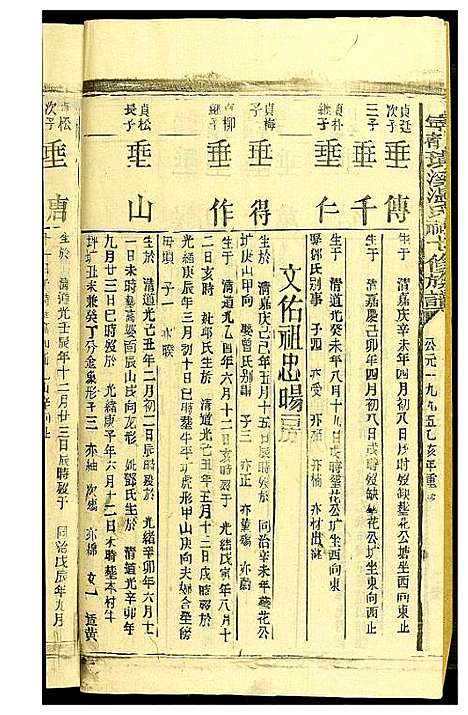 公元一九九五乙亥年重修
貞廷次子
垂傳
生於 清嘉庆辛未年四月初八日戌時歿缺 塟花公圹坐東向西止
三子
垂千
生于 清嘉慶己卯年四月初八日戌時歿缺 塟花公圹坐東向西止
継子
垂仁
生于 清道光癸未年八月十九日戌時塟花公圹坐西向東
娶邹氏别事 子四 亦受 亦楠 亦材出継
文佑祖忠暘房
貞梅子
垂得
生於 清嘉庆己巳年五月十五日辰時歿於 同治辛未年塟花公
圹庚山甲向 娶曾氏别醮 子三 亦正
貞柳
垂作
生於 清道光乙酉年六月十二日亥時歿于 光緒戊寅年八月十
二日亥時塟于 妣邱氏生於 清道光己丑年五月十二日戌時歿於
光緒庚辰年三月初十日巳時塟牛平圹虎形甲山庚向夫婦合坐傍
子一 亦騤
貞松長子
垂山
生於 清道光己丑年二月初二日辰時歿於 光緒辛卯年六月十
一日未時塟 辰山戌向龙形 妣鄧氏生於 清道光辛卯年
九月廿三日巳時歿於 光緒庚子年六月十二日未時塟本村牛
坪坵丑未兼癸丁分金象形子三 亦柚 次殤 亦棉 女一 适黄
貞松次子
垂唐
生於 清道光壬辰年十二月廿三日辰時歿于 同治戊辰年九月